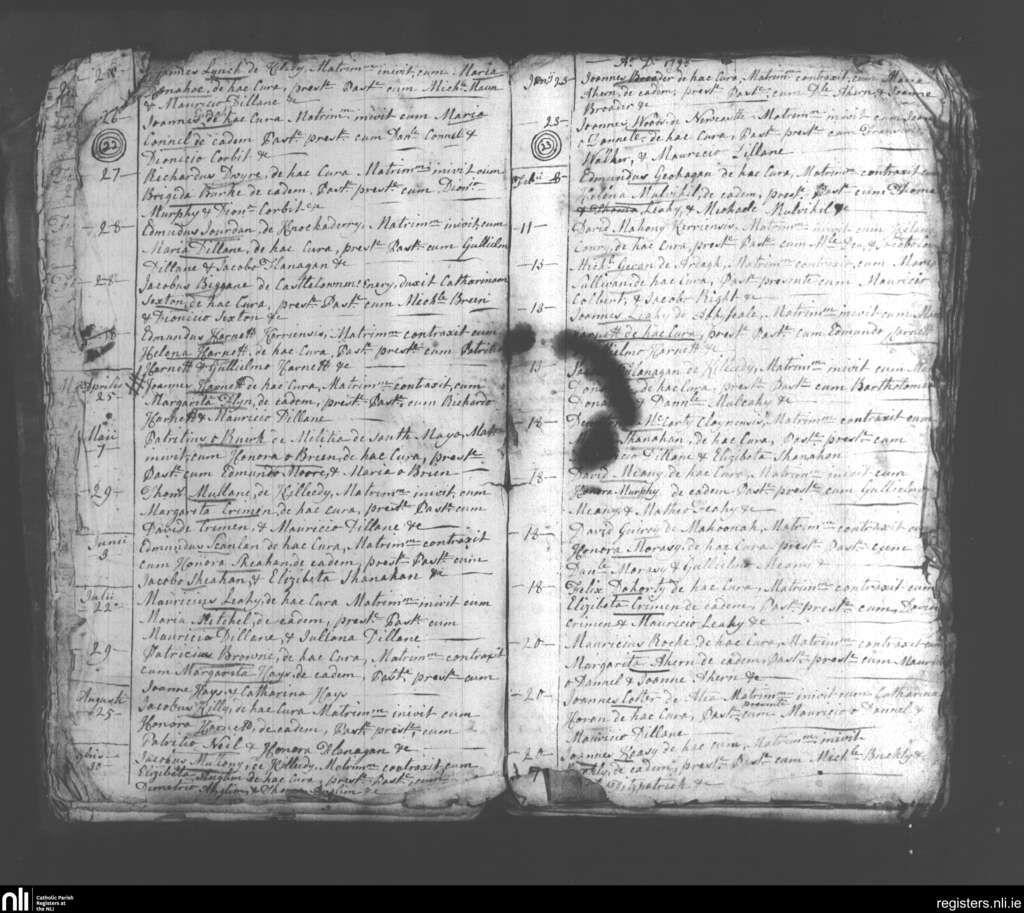 28 Joannes Lynch de Clary, Matrim.m inivit, cum Maria
Donahoe, de hac Cura, prest. Past. cum Mich.le
& Mauricio Dillane &c
26 Joannes de hac Cura Matrim.m inivit cum Maria
Connel de eadem Past. prest. cum Dan. Connel &
22 Dionicio Corbit &c
27 Richardus Dwyre, de hac Cura Matrim.m inivit cum
Brigida Burke de eadem, Past. prest. cum Dion.o
Murphy & Dion. Corbit &c
28 Edmundus Jourdan, de Knockaderry, Matrim.m inivit, cum
Maria Dillane, de hac Cura, prest. Past. cum Gullielm
Dillane & Jacobo Flanagan &c
28 Jacobus Biggane de Castletownm:Enery, duxit Catharinam
Sexton, de hac Cura, prest. Past. cum Mich.le Breen
& Dionicio Sexton &c
Edmundus Harnett Kerriensis, Matrim.m contraxit cum
Helena Harnett, de hac Cura, Past. prest. cum Patritio
Harnett & Gullielmo Harnett &c
Aprilis Joannes Harnett de hac Cura, Matrim.m contraxit, cum
25 Margarita Flyn, de eadem, prest. Past. cum Richardo
Harnett & Mauricio Dillane
Maii Patritius o Ruirk de Militia de South Mayo, Mat
7 inivit, cum Honora o Brien, de hac Cura, prest.
Past. cum Edmundo Moore, & Maria o Brien
29 Thom. Mullane, de Killeedy, Matrim.m inivit, cum
Margarita Cremen, de hac Cura, prest. Past. cum
Davide Cremen, & Mauricio Dillane &c
Junii Edmundus Scanlan de hac Cura, Matrim.m contraxit
3 cum Honora Sheahan, de eadem, prest. Past. cum
Jacobo Sheahan, & Elizibeta Shanahan &c
Julii Mauricius Leahy, de hac Cura Matrim.m inivit cum
22 Maria Mitchel, de eadem, prest. Past. cum
Mauricio Dillane, & Juliana Dillane
29 Patricius Browne, de hac Cura, Matrim.m contraxit
cum Margarita Hays, de eadem, Past. prest. cum
Joanne Hays & Catharina Hays
Augusti Jacobus Killy, de hac Cura Matrim.m inivit cum
25 Honora Harnett, de eadem, Past. prest. cum
Patritio Noel & Honora Flanagan &c
Jacobus Mulony, de Killeedy Matrim.m contraxit, cum
Elizibeta Anglim de hac Cura, prest. Past. cum
Demetrio Anglim, & Thoma Anglim &c
A.o D.i 1795
Joannes Broader de hac Cura, Matrim.m contraxit, cum Maria
Ahern, de eadem, prest. Past. cum D.le Ahern & Joanne
Broader &c
23 Joannes Woods de Newcastle Matrim.m inivit cum
o Connell de hac Cura, Past. prest. cum
23 Walker, & Mauricio Dillane
Edmundus Geohagan de hac Cura, Matrim.m contraxit cum
Helena Mulvihil, de eadem, prest. Past. cum Thoma
Leahy, & Michaele Mulvihil &c
11 David Mahony Kerriensis, Matrim.m inivit cum
Coury, de hac Cura, prest. Past. cum
15 Mich. de Ardagh, Matrim.m contraxit, cum Maria
Sullivan, de hac Cura, Past. presente cum Mauricio
Colbert, & Jacobo Right &c
15 Joannes Leahy de Abbyfeale, Matrim.m inivit cum
Harnett de hac Cura, prest. Past. cum Edmundo Harnett
& Gullielmo Harnett &c
15 Flanagan de Killeedy, Matrim.m inivit cum
de hac Cura, prest. Past. cum Bartholomeo
Dan.le Mulcahy &c
18 McCarty Cloynensis, Matrim.m contraxit cum
Shanahan, de hac Cura, Past. prest. cum
Mauricio Dillane & Elizibeta Shanahan
18 David Meany de hac Cura, Matrim.m inivit cum
Honora Murphy de eadem Past. prest. cum Gullielmo
Meany & Matheo Leahy &c
18 David Guiry de Mahoonah, Matrim.m contraxit cum
Honora Morasy, de hac Cura prest. Past. cum
Dan.le Morasy & Gullielmo Meany &c
18 Felix Dohorty de hac Cura, Matrim.m contraxit cum
Elizibeta Cremen de eadem, Past. prest. cum Davide
Cremen & Mauricio Leahy &c
20 Mauricius Roche, de hac Cura, Matrim.m contraxit cum
Margarita Ahern de eadem, Past. prest. cum Mauricio
o Dannel & Joanne Ahern &c
20 Joannes Colter de Matrim.m inivit cum Catharina
Horan de hac Cura, Past. presente cum Mauricio o Dannel &
Mauricio Dillane
Joannes Leasy de hac cura, Matrim.m inivit
de eadem, prest. Past. cum Mich.le Brickly &
Fitzpatrick &c
nli Catholic Parish
Registers at
the NLI
registers.nli.ie